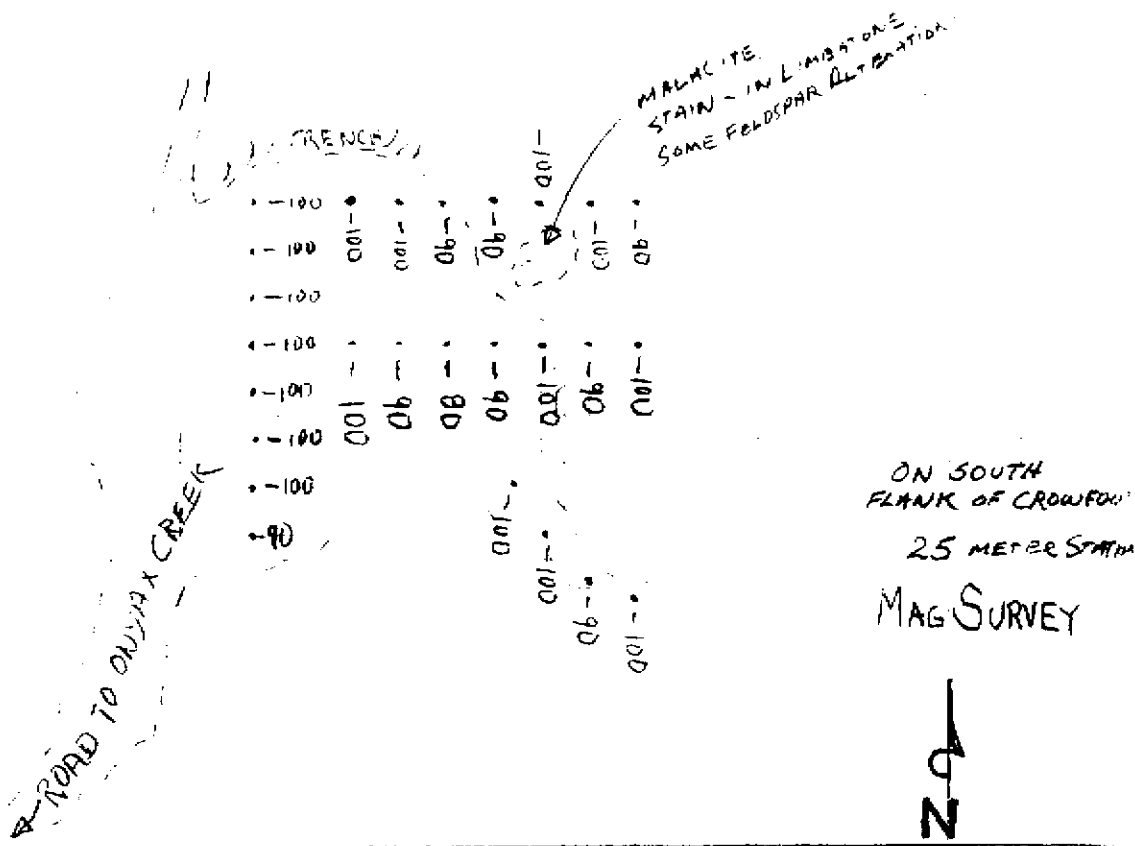 MALACITE
STAIN - IN LIMESTONE
SOME FELDSPAR ALTERATION
TRENCH
-100
-100 -100 -100 -90 -90 -100 -90
-100
-100
-100
-100 -90 -80 -90 -100 -90 -100
-100
-100
-100
-90
-100
-100
-90
-100
ROAD TO ONYAX CREEK
ON SOUTH
FLANK OF CROWFOO
25 METER STATIO
MAG SURVEY
N